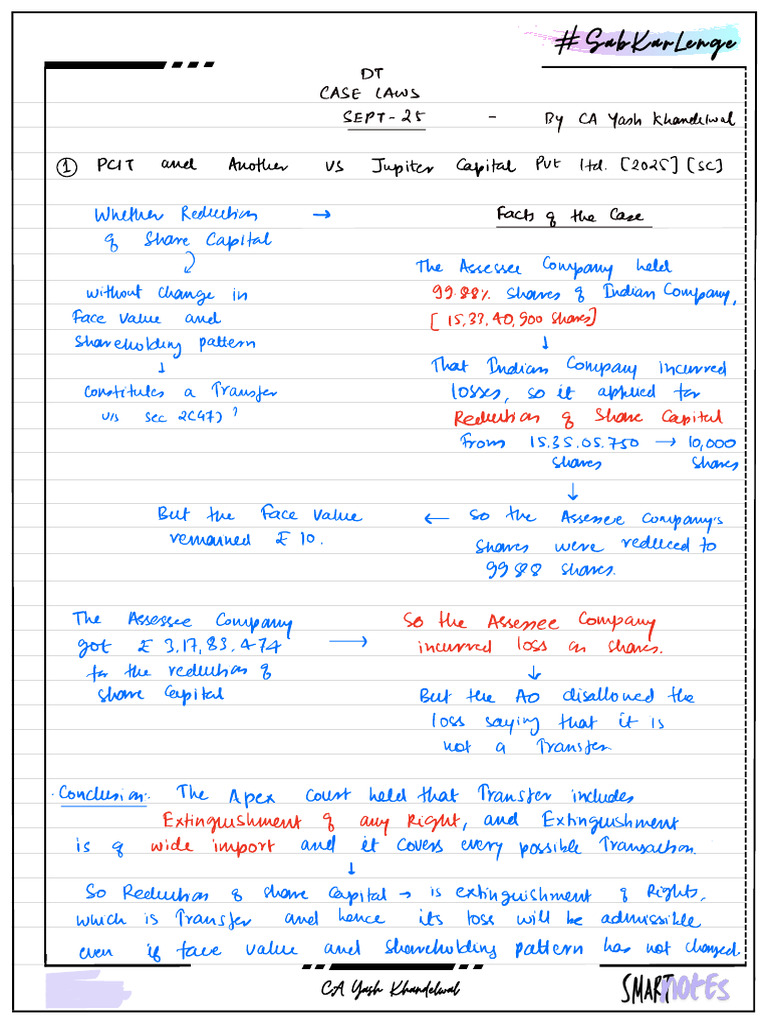 #SabKarLenge
DT
CASE LAWS
SEPT-25 - By CA Yash Khandelwal
① PCIT and Another vs Jupiter Capital Pvt ltd. [2025] [SC]
Whether Reduction →
of Share Capital
without change in
Face value and
Shareholding pattern
↓
Constitutes a Transfer
u/s sec 2(47)?
Facts of the Case
The Assessee Company held
99.88% shares of Indian Company,
[15,33,40,900 shares]
↓
That Indian Company incurred
losses, so it applied for
Reduction of Share Capital
From 15.35.05.750 → 10,000
shares shares
↓
So the Assessee Company's
shares were reduced to
9988 shares.
← But the Face value
remained ₹ 10.
The Assessee Company
got ₹ 3,17,83,474
for the reduction of
share Capital
→ So the Assessee Company
incurred loss on shares.
↓
But the AO disallowed the
loss saying that it is
not a Transfer
Conclusion:- The Apex Court held that Transfer includes
Extinguishment of any Right, and Extinguishment
is of wide import and it covers every possible Transaction.
↓
So Reduction of share Capital → is extinguishment of Rights,
which is Transfer and hence its loss will be admissible
even if face value and shareholding pattern has not changed.
CA Yash Khandelwal
SMART NOTES